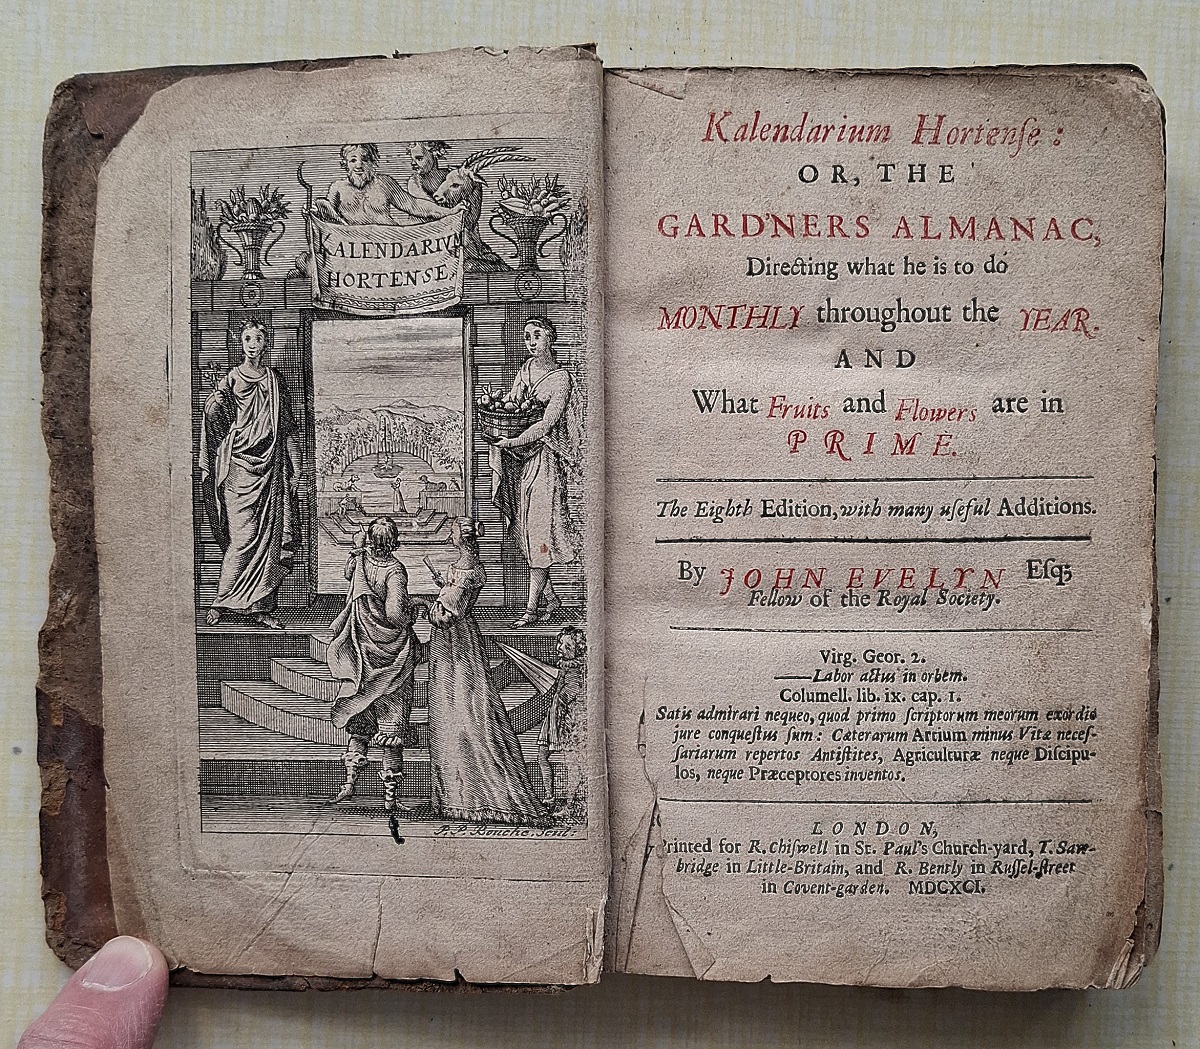 KALENDARIVM
HORTENSE
P. P. Bouche. sculp:
Kalendarium Hortenſe:
OR, THE
GARD'NERS ALMANAC,
Directing what he is to do
MONTHLY throughout the YEAR.
AND
What Fruits and Flowers are in
PRIME.
The Eighth Edition, with many uſeful Additions.
By JOHN EVELYN Eſqꝫ
Fellow of the Royal Society.
Virg. Geor. 2.
——Labor actus in orbem.
Columell. lib. ix. cap. 1.
Satis admirari nequeo, quod primo ſcriptorum meorum exordio
jure conqueſtus ſum: Cæterarum Artium minus Vitæ neceſ-
ſariarum repertos Antiſtites, Agriculturæ neque Diſcipu-
los, neque Præceptores inventos.
LONDON,
Printed for R. Chiſwell in St. Paul's Church-yard, T. Saw-
bridge in Little-Britain, and R. Bently in Ruſſel-ſtreet
in Covent-garden. MDCXCI.